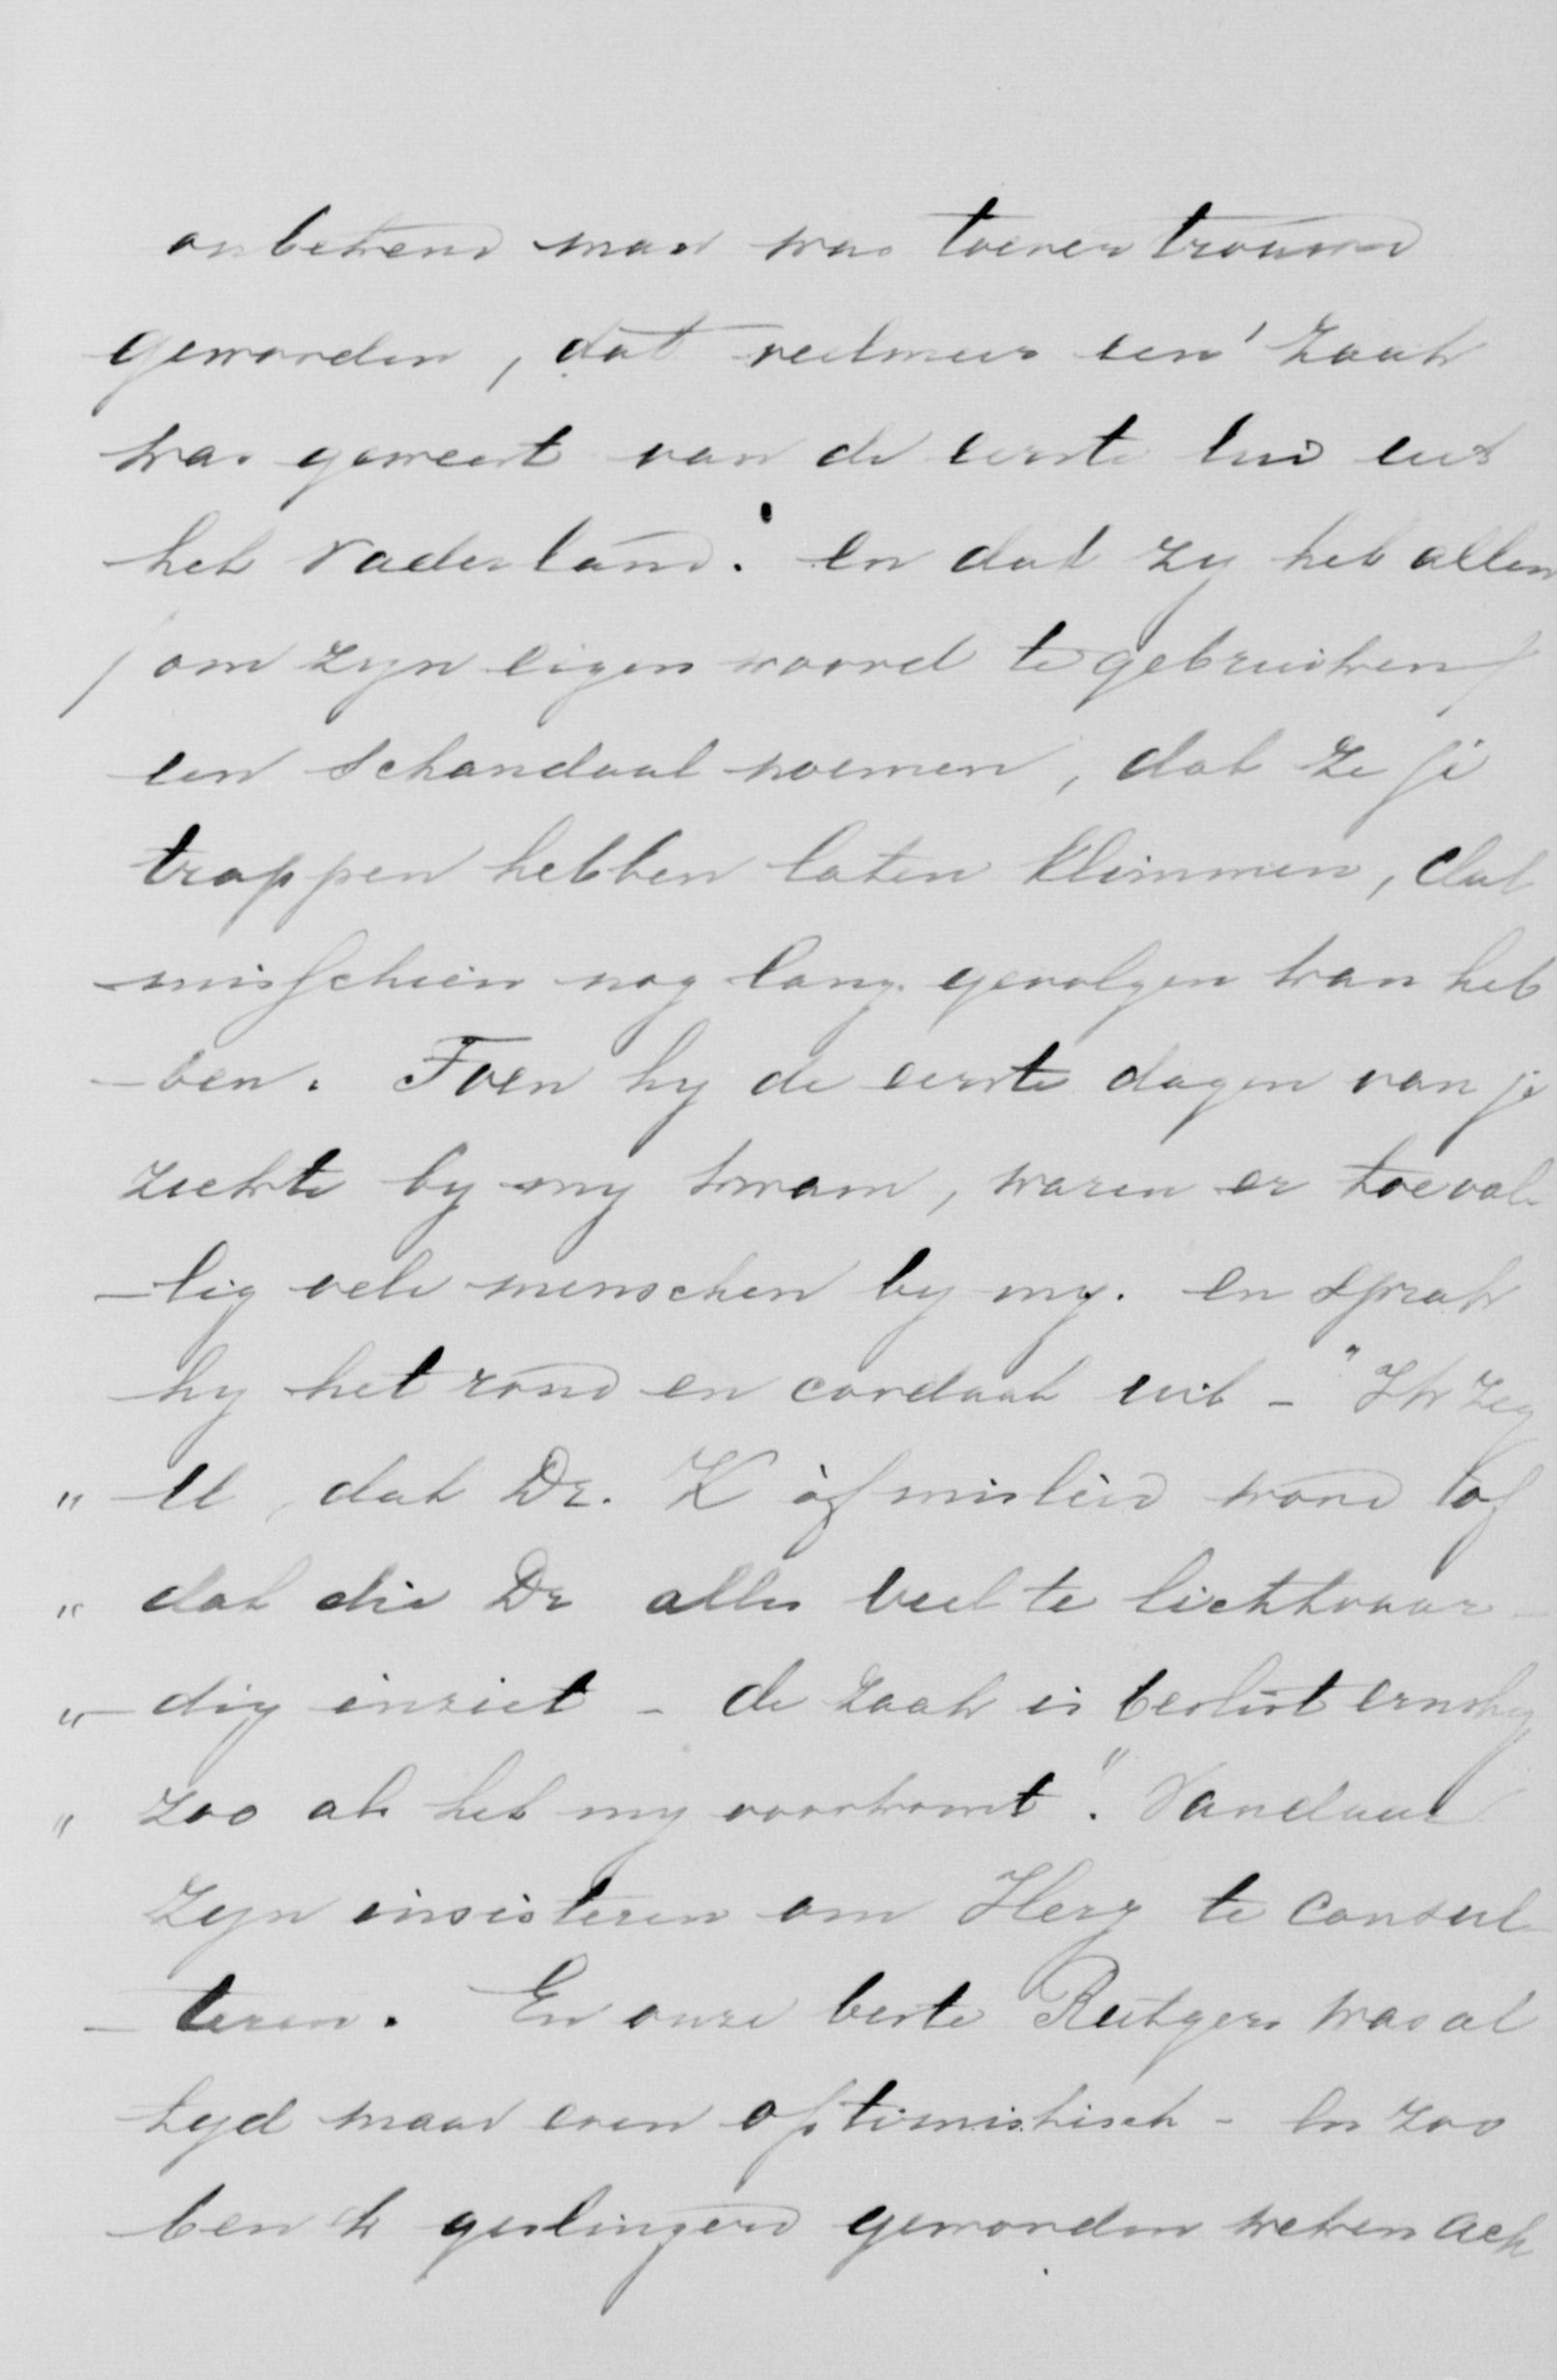 onbekend man was toevertrouwd
geworden, dat veelmeer een' zaak
was geweest van de eerste lui uit
het Vaderland. en dat zy het allen
/ om zyn eigen woord te gebruiken /
een schandaal noemen, dat ze je
trappen hebben laten klimmen, dat
misschien nog lang gevolgen kan heb
-ben. Toen hy de eerste dagen van je
ziekte by my kwam, waren er toeval
-lig vele menschen by my. en sprak
hy het rond en cordaat uit - "Ik zeg
" U, dat Dr. K òf misleid word of
" dat die Dr alles veel te lichtvaar-
" -dig inziet - de zaak is beslist ernstig
" zoo als het my voorkomt". Vandaar
zyn insisteren om Herz te consul
-teren. En onze beste Rutgers was al
tyd maar even optimistisch - En zoo
ben ik geslingerd geworden weken ach